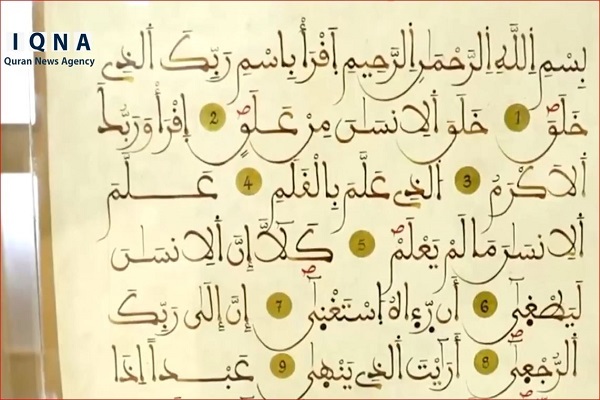 IQNA
Quran News Agency
بِسْمِ اِ۬للَّهِ اِ۬لرَّحْمَٰنِ اِ۬لرَّحِيمِ اِ۪قْرَأْ بِاسْمِ رَبِّكَ اَ۬لذِے
خَلَقَ 1 خَلَقَ اَ۬لِانسَٰنَ مِنْ عَلَقٍ 2 اِ۪قْرَأْ وَرَبُّكَ
اَ۬لَاكْرَمُ 3 اُ۬لذِے عَلَّمَ بِالْقَلَمِ 4 عَلَّمَ
اَ۬لِانسَٰنَ مَا لَمْ يَعْلَمْ 5 كَلَّا إِنَّ اَ۬لِانسَٰنَ
لَيَطْغ۪ىٰ 6 أَن رَّء۪اهُ اُ۪سْتَغْن۪ىٰ 7 إِنَّ إِلَىٰ رَبِّكَ
اَ۬لرُّجْع۪ىٰ 8 أَرَٰيْتَ اَ۬لذِے يَنْه۪ىٰ 9 عَبْداً اِذَا